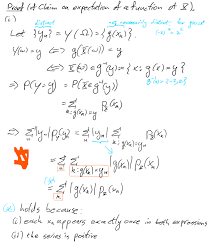 Proof (of Claim on expectation of a function of X).
(i)
distinct
not necessarily distinct for general
Let {yₙ} = Y(Ω) = {g(xₖ)}.
Y(ω) = y ⟺ g(X(ω)) = y
⟺ X(ω) ∈ g⁻¹(y) = {x : g(x) = y}
⇒ P(Y=y) = P(X ∈ g⁻¹(y))
= Σ_{k: g(xₖ)=y} pₓ(xₖ)
⇒ Σₙ |yₙ| p_Y(yₙ) = Σₙ |yₙ| Σ_{k: g(xₖ)=yₙ} pₓ(xₖ)
= Σₙ Σ_{k: g(xₖ)=yₙ} |g(xₖ)| pₓ(xₖ)
= Σₖ |g(xₖ)| pₓ(xₖ)
(*) holds because:
(i) each xₖ appears exactly once in both expressions
(ii) the series is positive